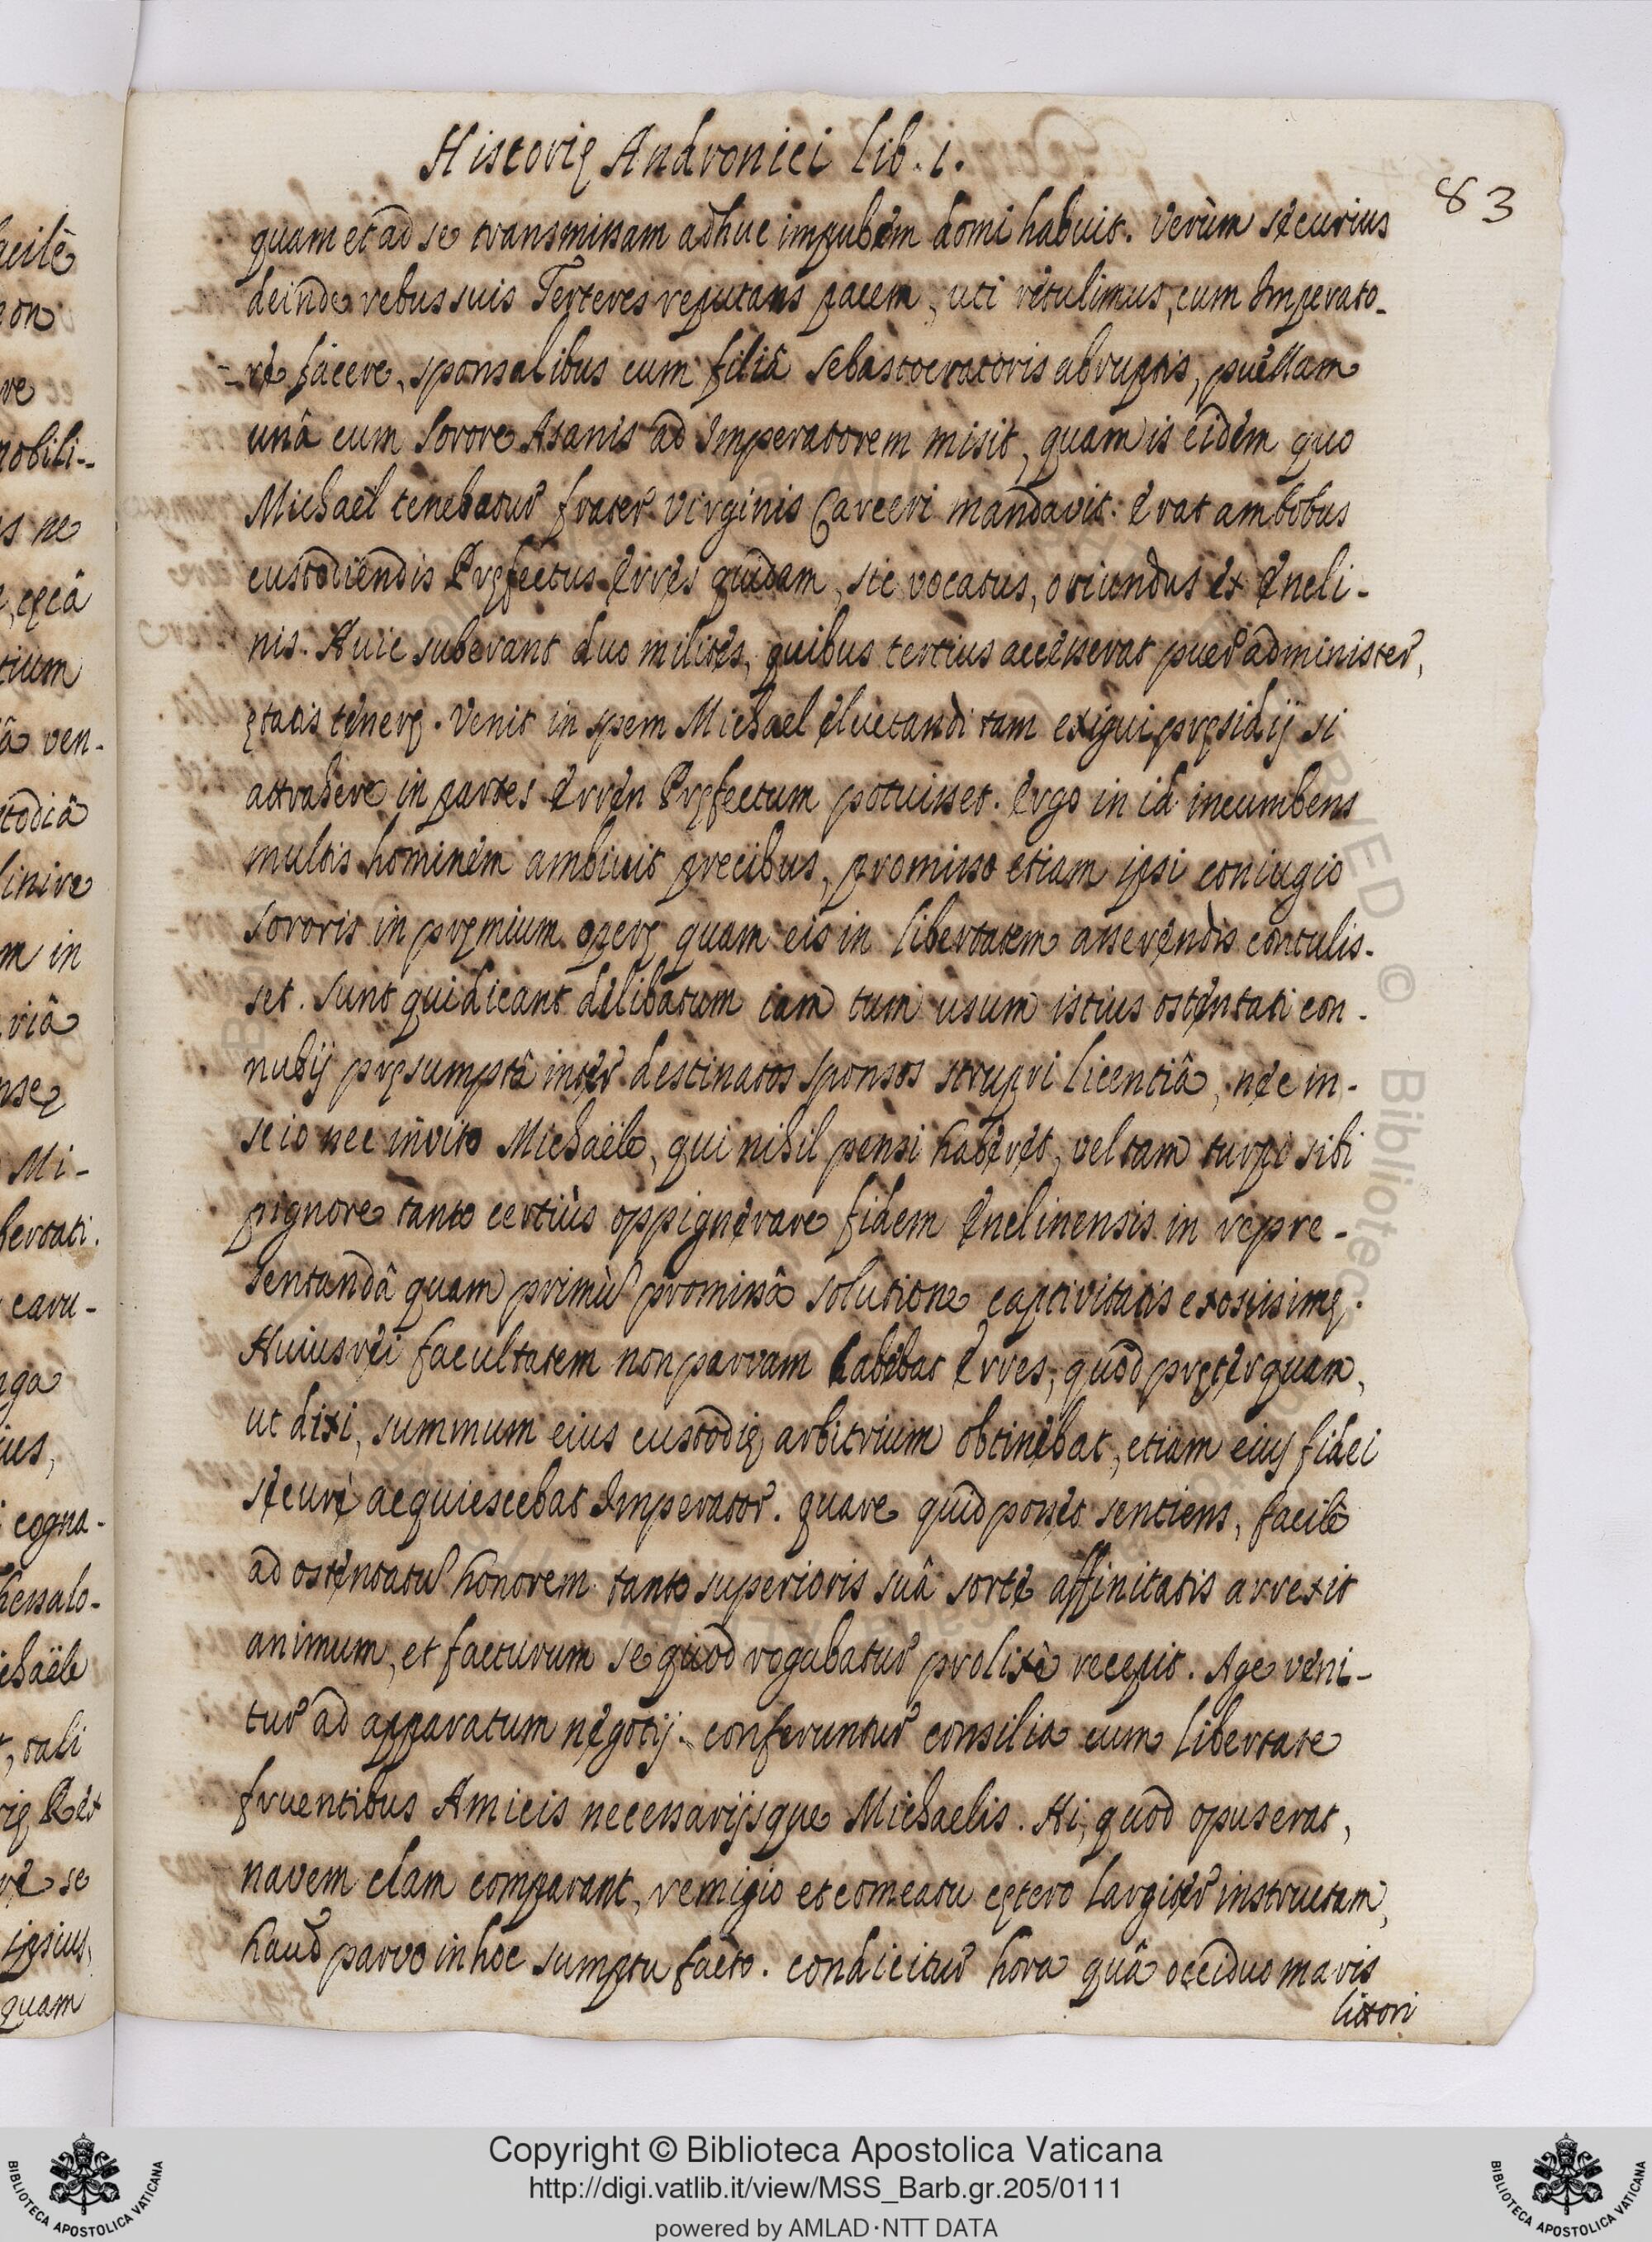 Historię Andronici lib. i.
83
quam et ad se transmissam adhuc impubem domi habuit. Verùm securius
deinde rebus suis Terteres reputans pacem, uti retulimus, cum Imperato-
-re facere, sponsalibus cum filiâ Sebastocratoris abruptis, puellam
unâ cum sorore Asanis ad Imperatorem misit, quam is eidem quo
Michael tenebatur frater virginis Carceri mandavit. Erat ambobus
custodiendis Pręfectus Erres quidam, sic vocatus, oriundus ex Encli-
nis. Huic suberant duo milites, quibus tertius accesserat puer administer,
ętatis tenerę. Venit in spem Michael eluctandi tam exigui pręsidij si
attrahere in partes Erren Pręfectum potuisset. Ergo in id incumbens
multis hominem ambiuit precibus, promisso etiam ipsi coniugio
sororis in pręmium operę quam eis in libertatem asserendis contulis-
set. Sunt qui dicant delibatum iam tum usum istius ostentati con-
nubij pręsumptâ inter destinatos sponsos strupri licentiâ, nec in-
scio nec invito Michaële, qui nihil pensi haberet, vel tam turpi sibi
pignore tanto certiùs oppignerare fidem Enclinensis in repre-
sentandâ quam primùm promissâ solutione captivitatis exosissimę.
Huius rei facultatem non parvam habebat Erres, quòd pręterquam,
ut dixi, summum eius custodię arbitrium obtinebat, etiam eius fidei
securè acquiescebat Imperator. quare quid posset sentiens, facilè
ad ostentatum honorem tanto superioris suâ sorte affinitatis arrexit
animum, et facturum se quod rogabatur prolixè recepit. Age veni-
tur ad apparatum negotij. conferuntur consilia cum libertate
fruentibus Amicis necessarijsque Michaelis. Hi, quod opus erat,
navem clam comparant, remigio et comeatu cętero largiter instructam,
haud parvo in hoc sumptu facto. condicitur hora quâ occiduo maris
littori
acilè
on
re
nobili-
s ne
cęcâ
tium
â ven-
todiâ
linire
m in
riâ
nsę
Mi-
bertati.
caru-
nga
ius,
cogna-
hessalo-
ichaële
, tali
rię Rex
re se
ipsius,
quam
Copyright © Biblioteca Apostolica Vaticana
http://digi.vatlib.it/view/MSS_Barb.gr.205/0111
powered by AMLAD·NTT DATA
BIBLIOTECA APOSTOLICA VATICANA
BIBLIOTECA APOSTOLICA VATICANA